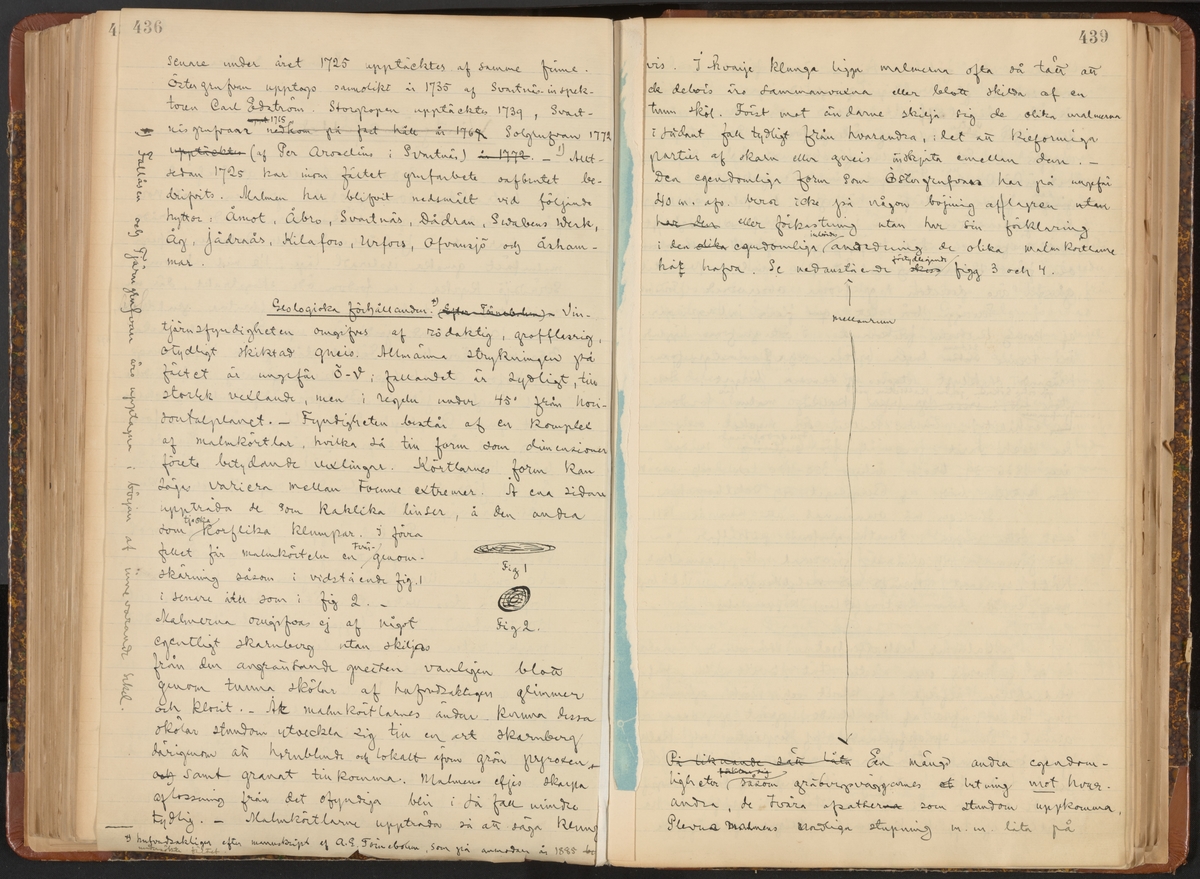 436
senare under året 1725 upptäcktes af samme finne.
Östergrufvan upptogs sannolikt år 1735 af Svartnäs inspek-
toren Carl Edström. Storgropen upptäcktes 1739, Svart-
näsgrufvan nedkom på fast häll år 1769 Solgrufvan 1772
upptäcktes (af Per Aroselius i Svartnäs) år 1772. — 1) Allt-
sedan 1725 har inom fältet grufarbete oafbrutet be-
drifvits. Malmen har blifvit nedsmält vid följande
hyttor: Åmot, Åbro, Svartnäs, Dådran, Swabens Werk,
Ag, Jädraås, Kilafors, Urfors, Ofvansjö och Årham-
mar.
Geologiska förhållanden. 2) (efter Törnebohm) — Vin-
tjärnsfyndigheten omgifves af rödaktig, grofflasrig,
otydligt skiktad gneis. Allmänna strykningen på
fältet är ungefär Ö-V; fallandet är sydligt, till
storlek vexlande, men i regeln under 45° från hori-
sontalplanet. — Fyndigheten består af en komplex
af malmkörtlar, hvilka så till form som dimensioner
förete betydande vexlingar. Körtlarnes form kan
sägas variera mellan tvenne extremer. Å ena sidan
uppträda de som kaklika linser, å den andra
som tjocka korflika klumpar. I förra
fallet får malmkörteln en tvär- genom-
skärning såsom i vidstående fig. 1
i senare åter som i fig 2. —
Fig 1
Fig 2.
Malmerna omgifvas ej af något
egentligt skarnberg utan skiljas
från den angränsande gneisen vanligen blott
genom tunna skölar af hufvudsakligen glimmer
och klorit. — At malmkörtlarnes ändar kunna dessa
skölar stundom utveckla sig till en art skarnberg
därigenom att hornblende och lokalt äfven grön pyroxen
och samt granat tillkomma. Malmens eljes skarpa
aflossning från det ofyndiga blir i så fall mindre
tydlig. — Malmkörtlarne uppträda så att säga klung
2) Hufvudsakligen efter manuskript af A.E. Törnebohm, som på anmodan år 1885
1) Fallåsen och Tjärngrufvan äro upptagna i början af innevarande sekel.
439
vis. I hvarje klunga ligga malmerna ofta så tätt att
de delvis äro sammanvuxna eller blott skilda af en
tunn sköl. Först mot ändarne skilja sig de olika malmerna
i sådant fall tydligt från hvarandra, i det att kilformiga
partier af skarn eller gneis inskjuta emellan dem. —
Den egendomliga form som Östergrufvan har på ungefär
240 m. afv. beror icke på någon böjning af lagren utan
har den eller förkastning utan har sin förklaring
i den olika egendomliga anordning de olika malmkörtlarne
här hafva. Se nedanstående förtydligande skiss figg 3 och 4.
mellanrum
På liknande sätt låta En mängd andra egendom-
ligheter såsom gråbergsväggarnes lutning mot hvar-
andra, de tvära afsatserna som stundom uppkomma,
malmens nordliga stupning m.m. låta på